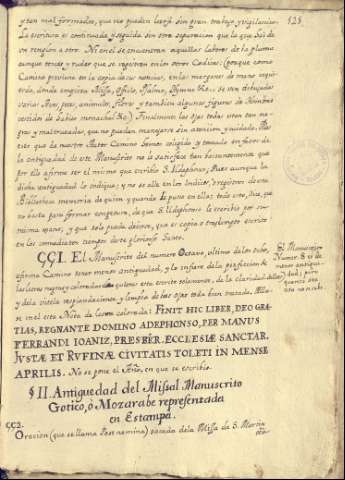 y tan mal formados, que no pueden leerse sin gran trabajo, y vigilancia.
La escritura es continuada, y seguida sin otra separacion que la que hai de
un renglon a otro. Ni en el se encuentran aquellas labores de la pluma
aunque toscas y rudas que se registran en los otros Codices: (porque como
Camino previene en la copia de sus noticias, en las margenes de mano izqui-
erda, donde empieza Missa, Oficio, Psalmo, Hymno &c. se ven dibujadas
varias Aves, peces, animales, flores y tambien algunas figuras de Hombres
vestidos de habito monachal &c.) Finalmente las ojas todas estan tan ne-
gras y maltratadas, que no pueden manejarse sin atencion, y cuidado.
to que de nuestro Autor Camino hemos colegido, y tomado en favor de
la antiguedad de este Manuscrito no le satisface tan bastantemente que
por ello afirme ser el mismo que escribio S. Ildephonso; Pues aunque la
dicha antiguedad lo indique; y no se alla en los Indices, o registros de esta
Bibliotheca memoria de quien y quando se puso en ella; todo esto, dice, que
no basta para formar congetura, de que S. Ildephonso le escribio por sus
misma mano, y que solo puede decirse, que es copia o exemplar escrito
en los inmediatos tiempos de este glorioso Santo.
CCI. El Manuscrito del numero Octavo, ultimo de los dichos,
afirma Camino tener menos antiguedad, y lo infiere de la perfeccion de
las letras negras y coloradas de que usa este escrito toletano, de la claridad de ellas
y de la vitela resplandeciente, y limpia de las ojas todo bien tratado.
se en el esta Nota de letra colorada: FINIT HIC LIBER, DEO GRA-
TIAS, REGNANTE DOMINO ADEPHONSO, PER MANUS
FERRANDI IOANIZ, PRESBER. ECCLESIÆ SANCTAR.
JUSTÆ ET RUFINÆ CIVITATIS TOLETI IN MENSE
APRILIS. No se pone el Año, en que se escribio.
El Manuscrito
Numer. 8. es de
menor antigue-
dad; pero
§ II. Antiguedad del Missal Manuscrito
Gotico, ò Mozarabe representada
en Estampa.
CC2.
Oracion (que se llama Post nomina) sacada de la Missa de S. Martin